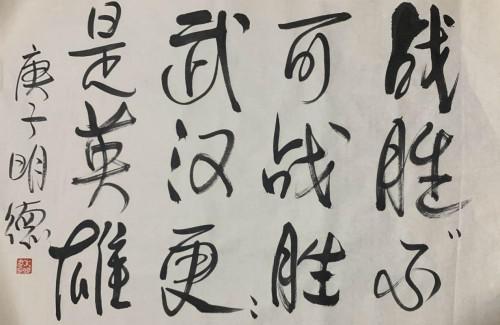 战胜“不
可战胜”
武汉更
是英雄
庚子明德